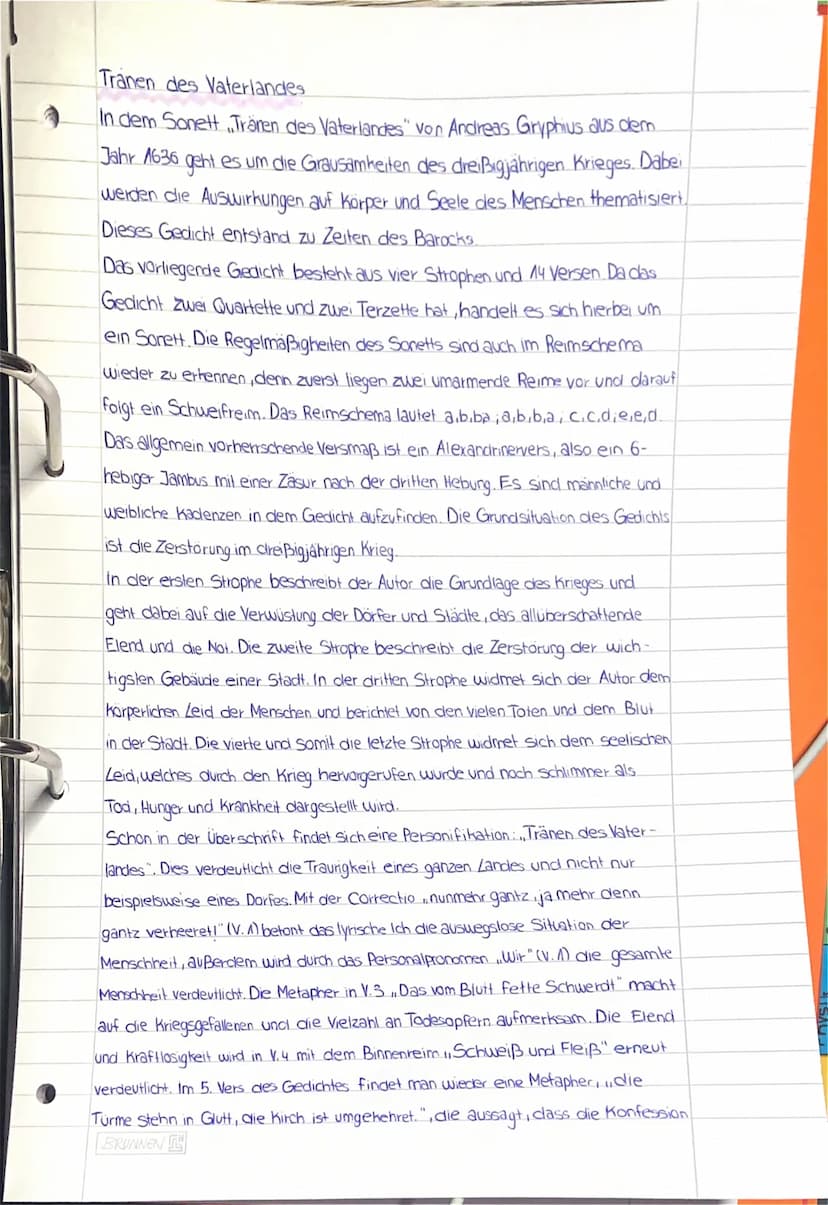 Tränen des Vaterlandes
In dem Sonett „Tränen des Vaterlandes" von Andreas Gryphius aus dem
Jahr 1636 geht es um die Grausamkeiten des dreißigjährigen Krieges. Dabei
werden die Auswirkungen auf Körper und Seele des Menschen thematisiert.
Dieses Gedicht entstand zu Zeiten des Barocks.
Das vorliegende Gedicht besteht aus vier Strophen und 14 Versen. Da das
Gedicht zwei Quartette und zwei Terzette hat, handelt es sich hierbei um
ein Sonett. Die Regelmäßigkeiten des Sonetts sind auch im Reimschema
wieder zu erkennen, denn zuerst liegen zwei umarmende Reime vor und darauf
folgt ein Schweifreim. Das Reimschema lautet a,b,b,a; a,b,b,a; c,c,d,e,e,d.
Das allgemein vorherrschende Versmaß ist ein Alexandrinervers, also ein 6-
hebiger Jambus mit einer Zäsur nach der dritten Hebung. Es sind männliche und
weibliche Kadenzen in dem Gedicht aufzufinden. Die Grundsituation des Gedichts
ist die Zerstörung im dreißigjährigen Krieg.
In der ersten Strophe beschreibt der Autor die Grundlage des Krieges und
geht dabei auf die Verwüstung der Dörfer und Städte, das allüberschattende
Elend und die Not. Die zweite Strophe beschreibt die Zerstörung der wich-
tigsten Gebäude einer Stadt. In der dritten Strophe widmet sich der Autor dem
körperlichen Leid der Menschen und berichtet von den vielen Toten und dem Blut
in der Stadt. Die vierte und somit die letzte Strophe widmet sich dem seelischen
Leid, welches durch den Krieg hervorgerufen wurde und noch schlimmer als
Tod, Hunger und Krankheit dargestellt wird.
Schon in der Überschrift findet sich eine Personifikation: „Tränen des Vater-
landes". Dies verdeutlicht die Traurigkeit eines ganzen Landes und nicht nur
beispielsweise eines Dorfes. Mit der Correctio „nunmehr gantz, ja mehr denn
gantz verheeret!" (V. 1) betont das lyrische Ich die ausweglose Situation der
Menschheit, außerdem wird durch das Personalpronomen „Wir" (V. 1) die gesamte
Menschheit verdeutlicht. Die Metapher in V. 3 „Das vom Blutt fette Schwerdt" macht
auf die Kriegsgefallenen und die Vielzahl an Todesopfern aufmerksam. Die Elend
und Kraftlosigkeit wird in V. 4 mit dem Binnenreim „Schweiß und Fleiß" erneut
verdeutlicht. Im 5. Vers des Gedichtes findet man wieder eine Metapher, „die
Türme stehn in Glutt, die Kirch ist umgekehret.", die aussagt, dass die Konfession
BRUNNEN